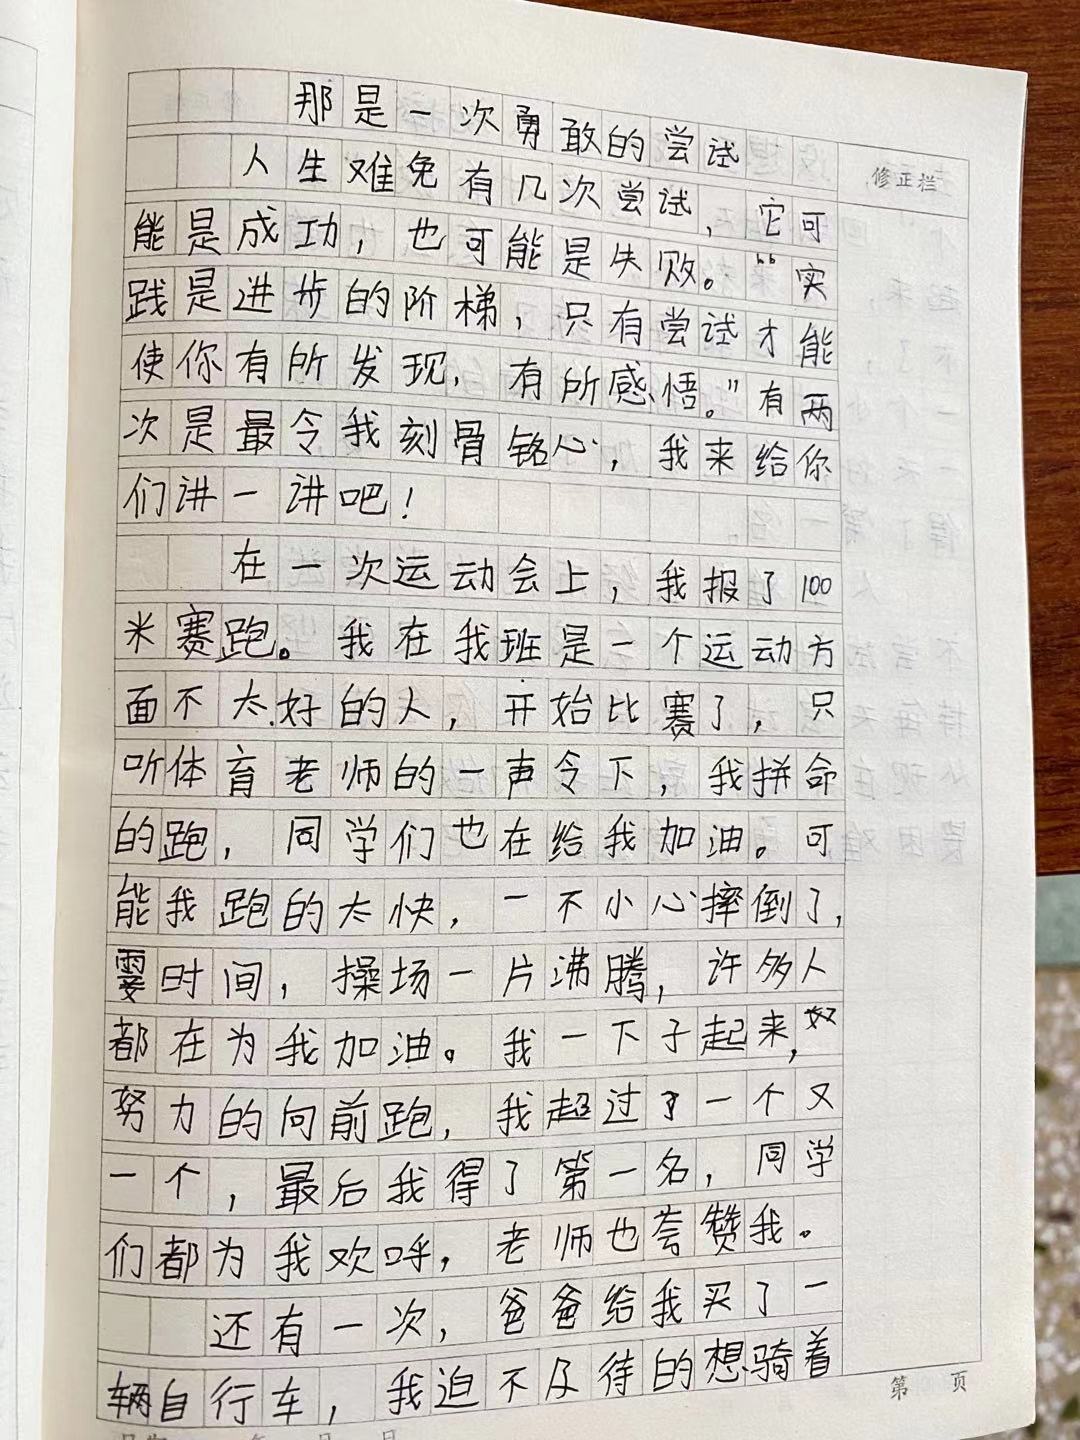 那是一次勇敢的尝试
人生难免有几次尝试，它可
修正栏
能是成功，也可能是失败。“实
践是进步的阶梯，只有尝试才能
使你有所发现，有所感悟。”有两
次是最令我刻骨铭心，我来给你
们讲一讲吧！
在一次运动会上，我报了100
米赛跑。我在我班是一个运动方
面不太好的人，开始比赛了，只
听体育老师的一声令下，我拼命
的跑，同学们也在给我加油。可
能我跑的太快，一不小心摔倒了，
时间，操场一片沸腾，许多人
都在为我加油。我一下子起来，
努力的向前跑，我超过了一个又
一个，最后我得了第一名，同学
们都为我欢呼，老师也赞我。
还有一次，爸爸给我买了一
辆自行车，我迫不及待的想骑着
第 页